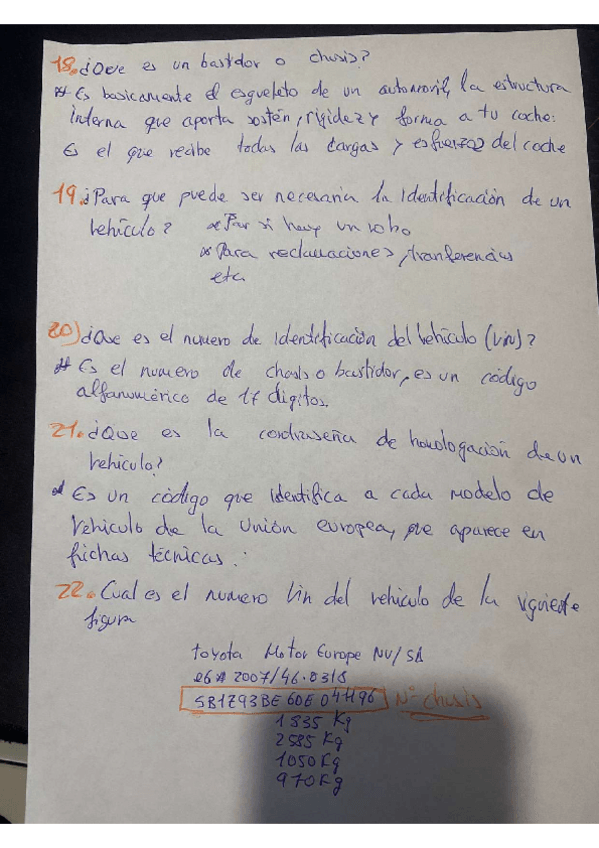 18. ¿Que es un bastidor o chasis?
* Es basicamente el esqueleto de un automovil, la estructura
interna que aporta sostén, rigidez y forma a tu coche.
Es el que recibe todas las cargas y esfuerzos del coche
19. ¿Para que puede ser necesaria la identificación de un
vehículo? * Por si hay un robo
* Para reclamaciones, tranferencias
etc.
20) ¿Que es el numero de identificación del vehículo (vin)?
* Es el numero de chasis o bastidor, es un código
alfanumérico de 17 digitos.
21. ¿Que es la contraseña de homologación de un
vehiculo?
* Es un código que identifica a cada modelo de
vehiculo de la unión europea, que aparece en
fichas técnicas.
22. Cual es el numero vin del vehiculo de la siguiente
figura
toyota Motor Europe NV/SA
e6*2007/46*0318
SB1Z93BE60E044496 Nº chasis
1835 Kg
2585 Kg
1050 Kg
970 Kg